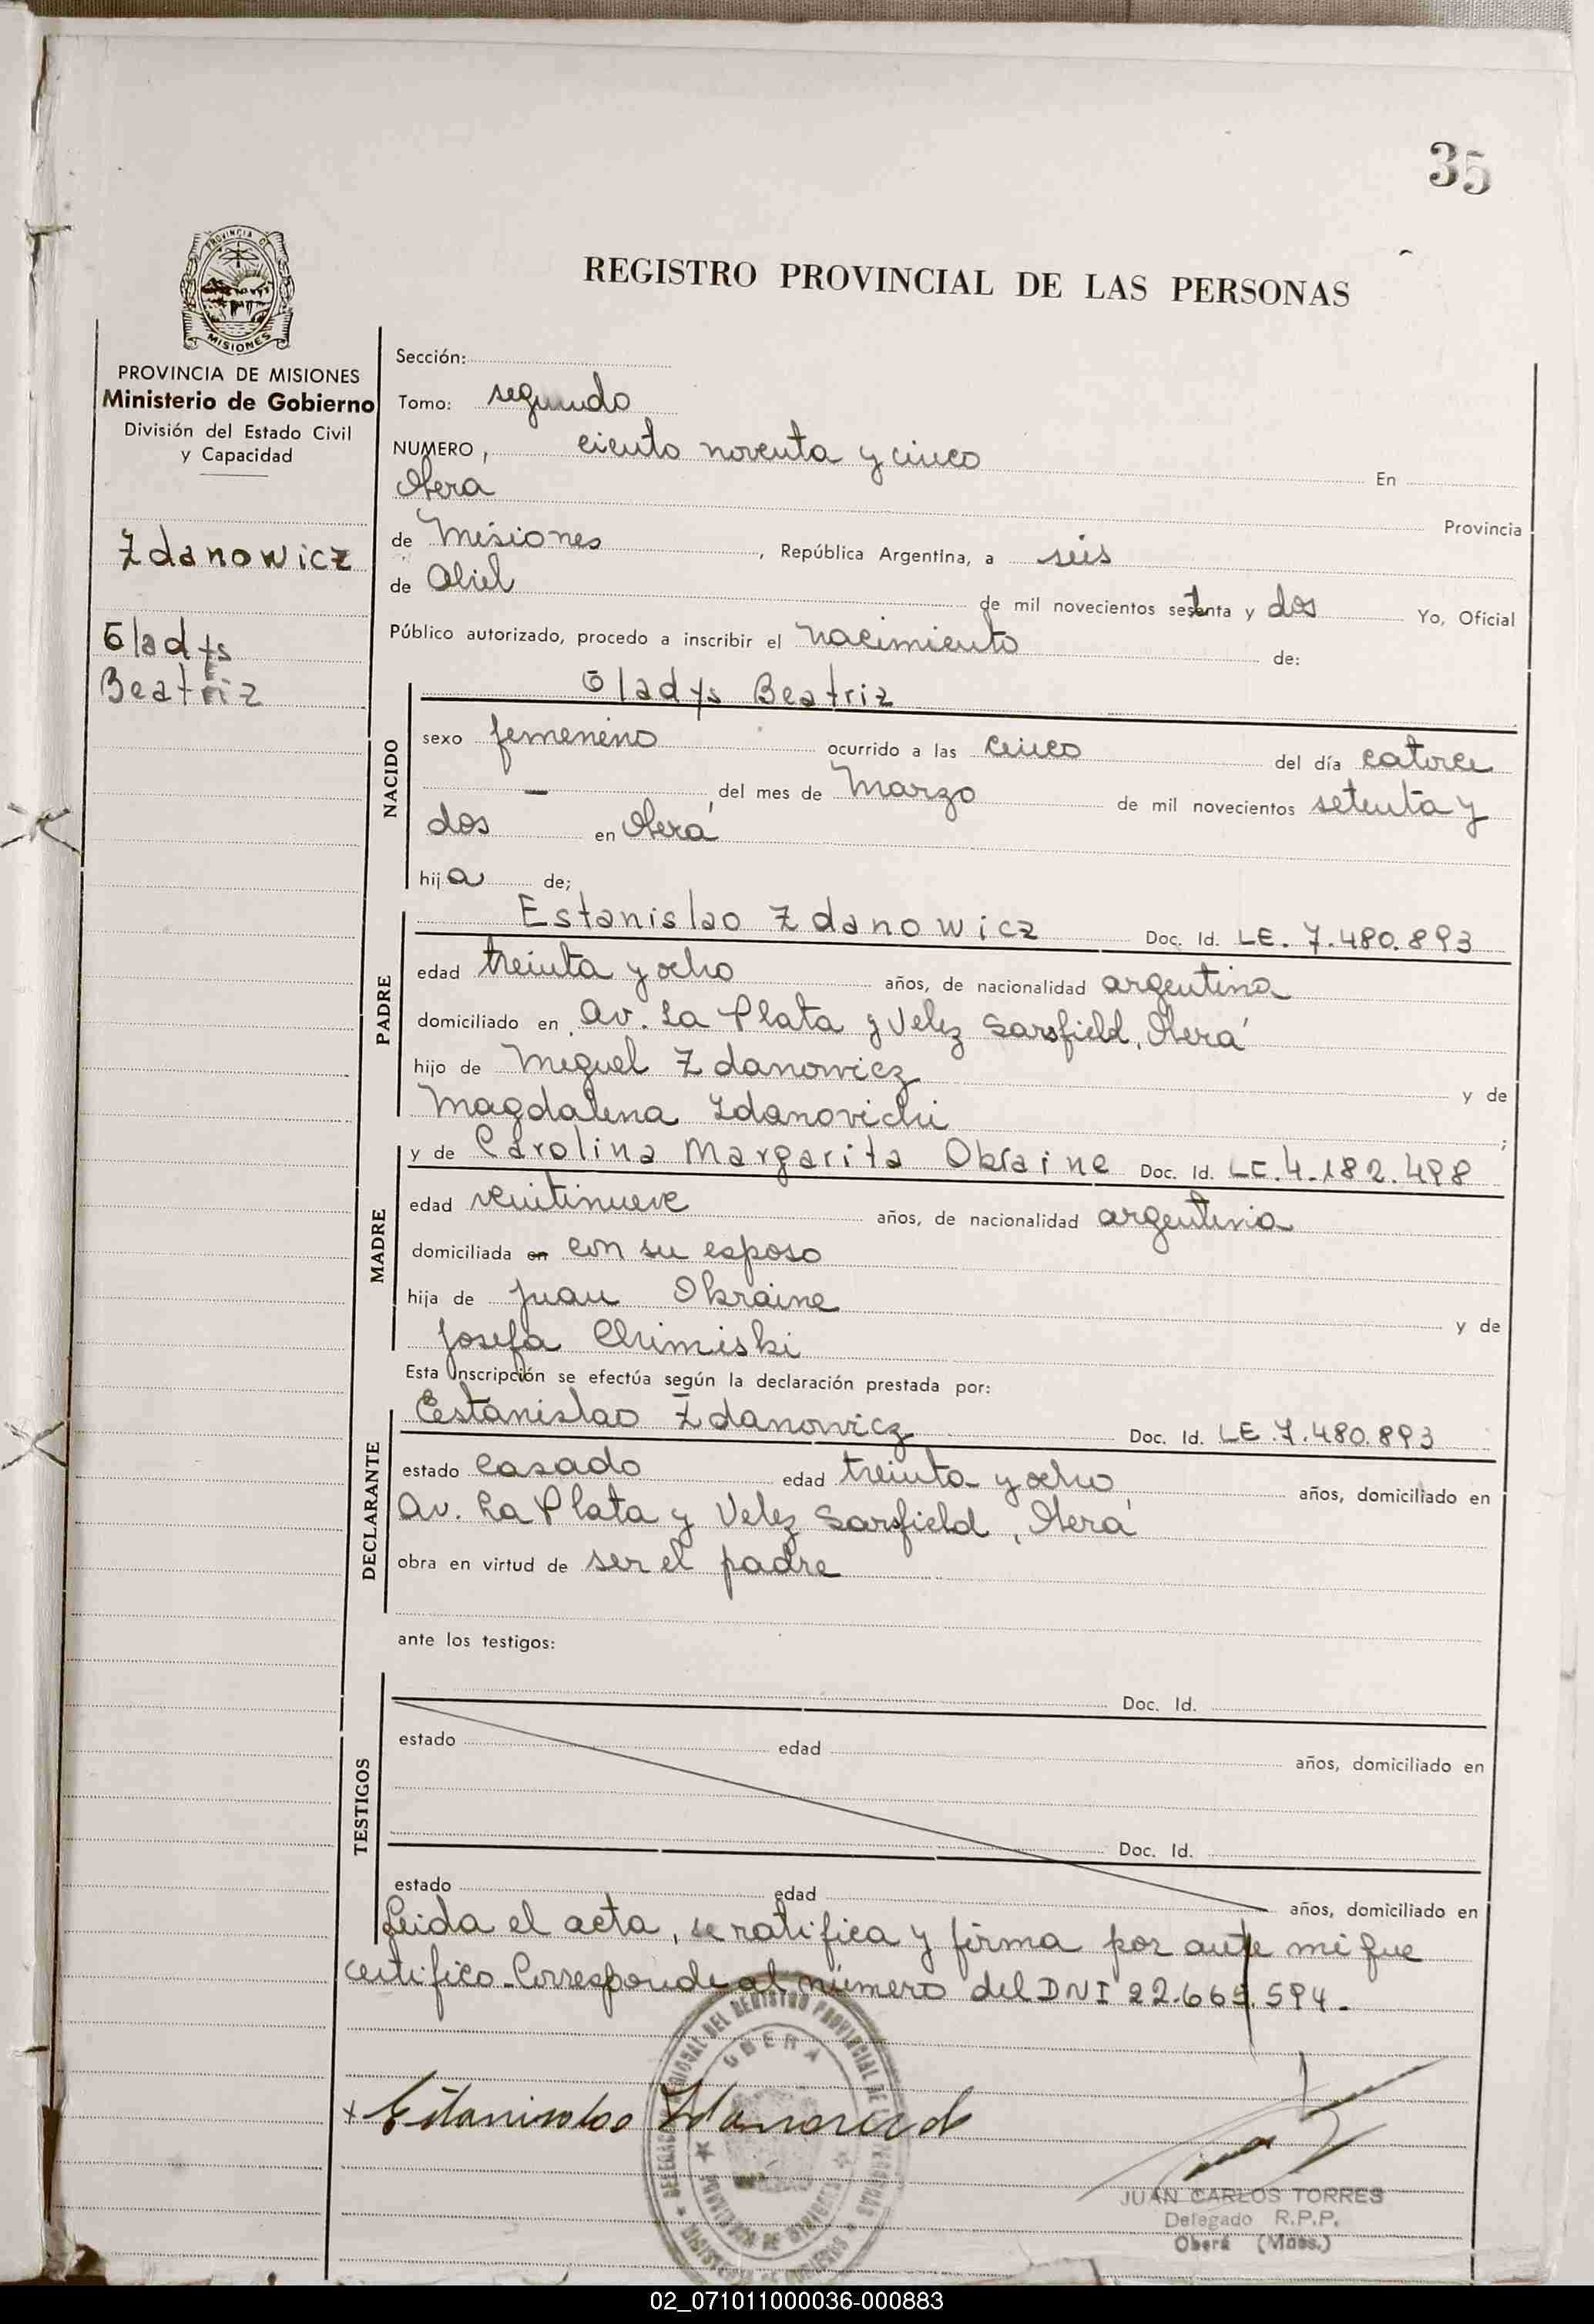 35
PROVINCIA DE
MISIONES
REGISTRO PROVINCIAL DE LAS PERSONAS
PROVINCIA DE MISIONES
Ministerio de Gobierno
División del Estado Civil
y Capacidad
Zdanowicz
Gladys
Beatriz
Sección:
Tomo: segundo
NUMERO, ciento noventa y cinco En
Obera Provincia
de Misiones, República Argentina, a seis
de Abril de mil novecientos setenta y dos Yo, Oficial
Público autorizado, procedo a inscribir el nacimiento de:
NACIDO
Gladys Beatriz
sexo femenino ocurrido a las cinco del día catorce
- del mes de Marzo de mil novecientos setenta y
dos en Oberá
hija de;
PADRE
Estanislao Zdanowicz Doc. Id. LE. 7.480.893
edad treinta y ocho años, de nacionalidad argentina
domiciliado en Av. La Plata y Velez Sarsfield, Oberá
hijo de Miguel Zdanowicz y de
Magdalena Zdanovichi;
MADRE
y de Carolina Margarita Okraine Doc. Id. LC. 4.182.498
edad veintinueve años, de nacionalidad argentina
domiciliada en con su esposo
hija de Juan Okraine y de
Josefa Chimiski
Esta inscripción se efectúa según la declaración prestada por:
DECLARANTE
Estanislao Zdanowicz Doc. Id. LE. 7.480.893
estado casado edad treinta y ocho años, domiciliado en
Av. La Plata y Velez Sarsfield, Oberá
obra en virtud de ser el padre
ante los testigos:
TESTIGOS
Doc. Id.
estado edad años, domiciliado en
Doc. Id.
estado edad años, domiciliado en
Leida el acta, se ratifica y firma por ante mi que
certifico. Corresponde al número del DNI 22.665.594.-
OBERA
x Estanislao
JUAN CARLOS TORRES
Delegado R.P.P.
Oberá (Mnes.)
02_071011000036-000883